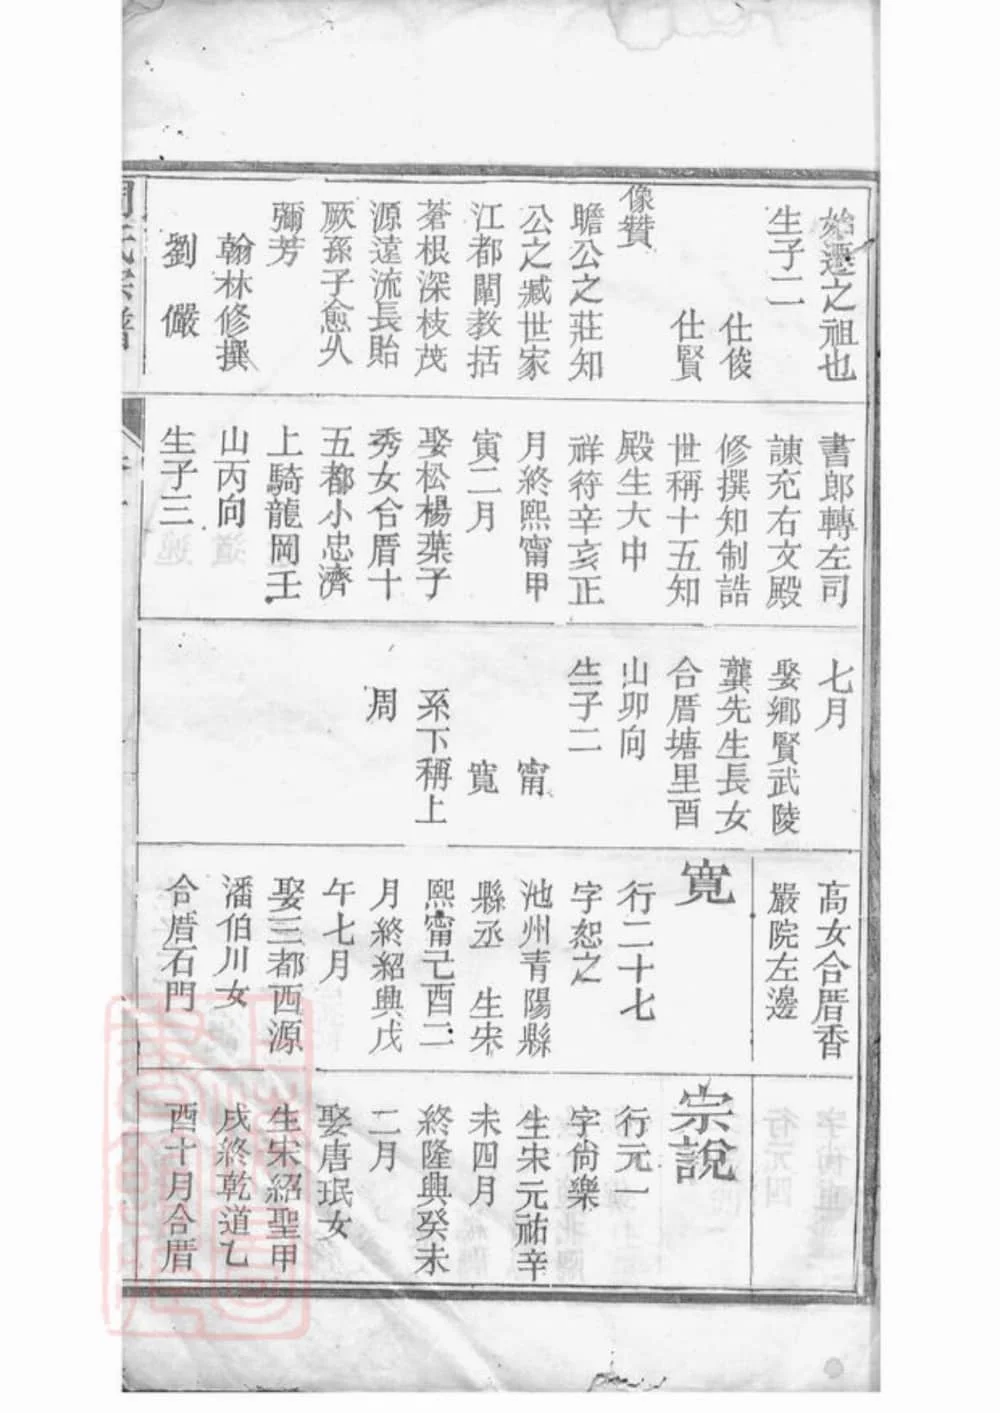 始遷之祖也
生子二
仕俊
仕賢
像贊
瞻公之莊知
公之臧世家
江都闡教括
蒼根深枝茂
源遠流長貽
厥孫子愈久
彌芳
翰林修撰
劉儼
書郎轉左司
諫充右文殿
修撰知制誥
世稱十五知
殿生大中
祥符辛亥正
月終熙甯甲
寅二月
娶松楊葉子
秀女合厝十
五都小忠濟
上騎龍岡壬
山丙向
生子三
七月
娶鄉賢武陵
龔先生長女
合厝塘里酉
山卯向
生子二
甯
寬
系下稱上
周
高女合厝香
嚴院左邊
寬
行二十七
字恕之
池州青陽縣
縣丞 生宋
熙甯己酉二
月終紹興戊
午七月
娶三都西源
潘伯川女
合厝石門
宗說
行元一
字尙樂
生宋元祐辛
未四月
終隆興癸未
二月
娶唐珉女
生宋紹聖甲
戌終乾道乙
酉十月合厝